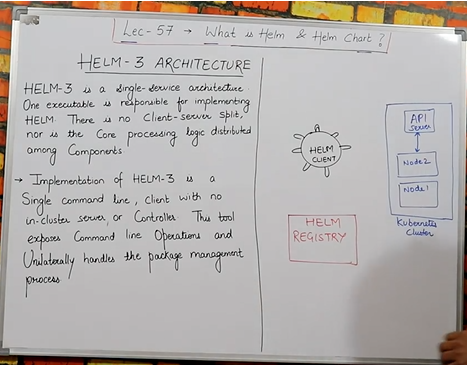 Lec-57 → What is Helm & Helm Chart?
HELM-3 ARCHITECTURE
HELM-3 is a single-service architecture.
One executable is responsible for implementing
HELM. There is no Client-server split,
nor is the Core processing logic distributed
among Components.
→ Implementation of HELM-3 is a
Single command line, client with no
in-cluster server, or Controller. This tool
exposes Command line Operations and
Unilaterally handles the package management
process.
HELM
CLIENT
HELM
REGISTRY
API
Server
Node2
Node1
Kubernetes
Cluster